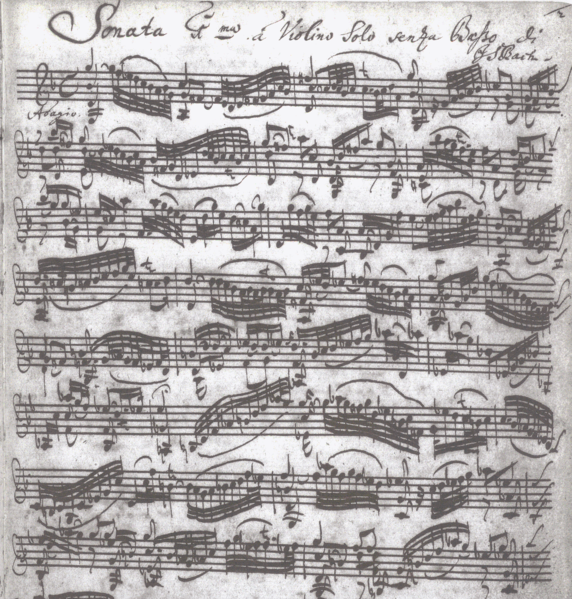 Sonata 1ma à Violino Solo senza Basso di
JSBach
Adagio.